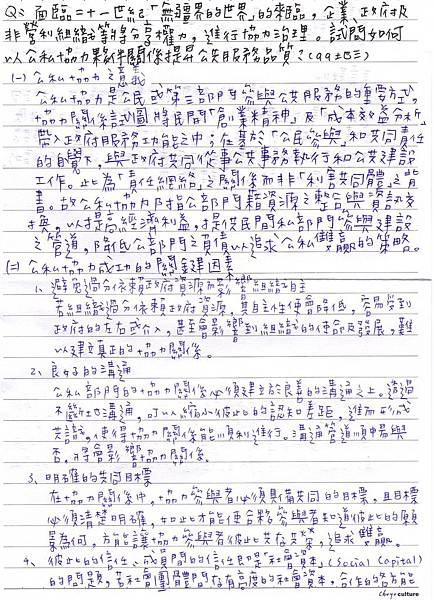 Q：面臨二十一世紀「無疆界的世界」的來臨，企業、政府及
非營利組織三等將分享權力，進行協力治理。試問如何
以公私協力夥伴關係提昇公共服務品質？(99
(一) 公私協力之意義
公私協力是公民或第三部門參與公共服務的重要方式，
協力關係試圖將民間「創業精神」及「成本效益分析」
帶入政府服務功能之中；在基於「公民參與」和共同責任
的自覺下，與政府共同從事公共事務執行和公共建設
工作。此為「責任網絡」之關係而非「利害共同體」之背
書。故公私協力乃指公部門藉資源之整合與資訊交
換，以提高經濟利益，提供民間私部門參與建設
之管道，降低公部門之負債以追求公私雙贏的策略。
(二) 公私協力成功的關鍵因素
1、避免過分依賴政府資源而影響組織自主
若組織過分依賴政府資源，其自主性便會降低，容易受到
政府的左右或介入，甚至會影響到組織的使命與發展，難
以建立真正的協力關係。
2、良好的溝通
公私部門的協力關係必須建立於良善的溝通之上。透過
不斷地溝通，可以縮小彼此的認知差距，進而形成
共識，使得協力關係能順利進行。溝通管道順暢與
否，將會影響協力關係。
3、明確的共同目標
在協力關係中，協力參與者必須具備共同的目標，且目標
必須清楚明確，如此才能使合夥參與者知道彼此的願
景為何，方能讓協力參與者彼此共存共榮，追求雙贏。
4、彼此的信任、成員間的信任即是社會資本 (Social Capital)
的問題，若社會團體間存有高度的社會資本，合作的
Choyo culture